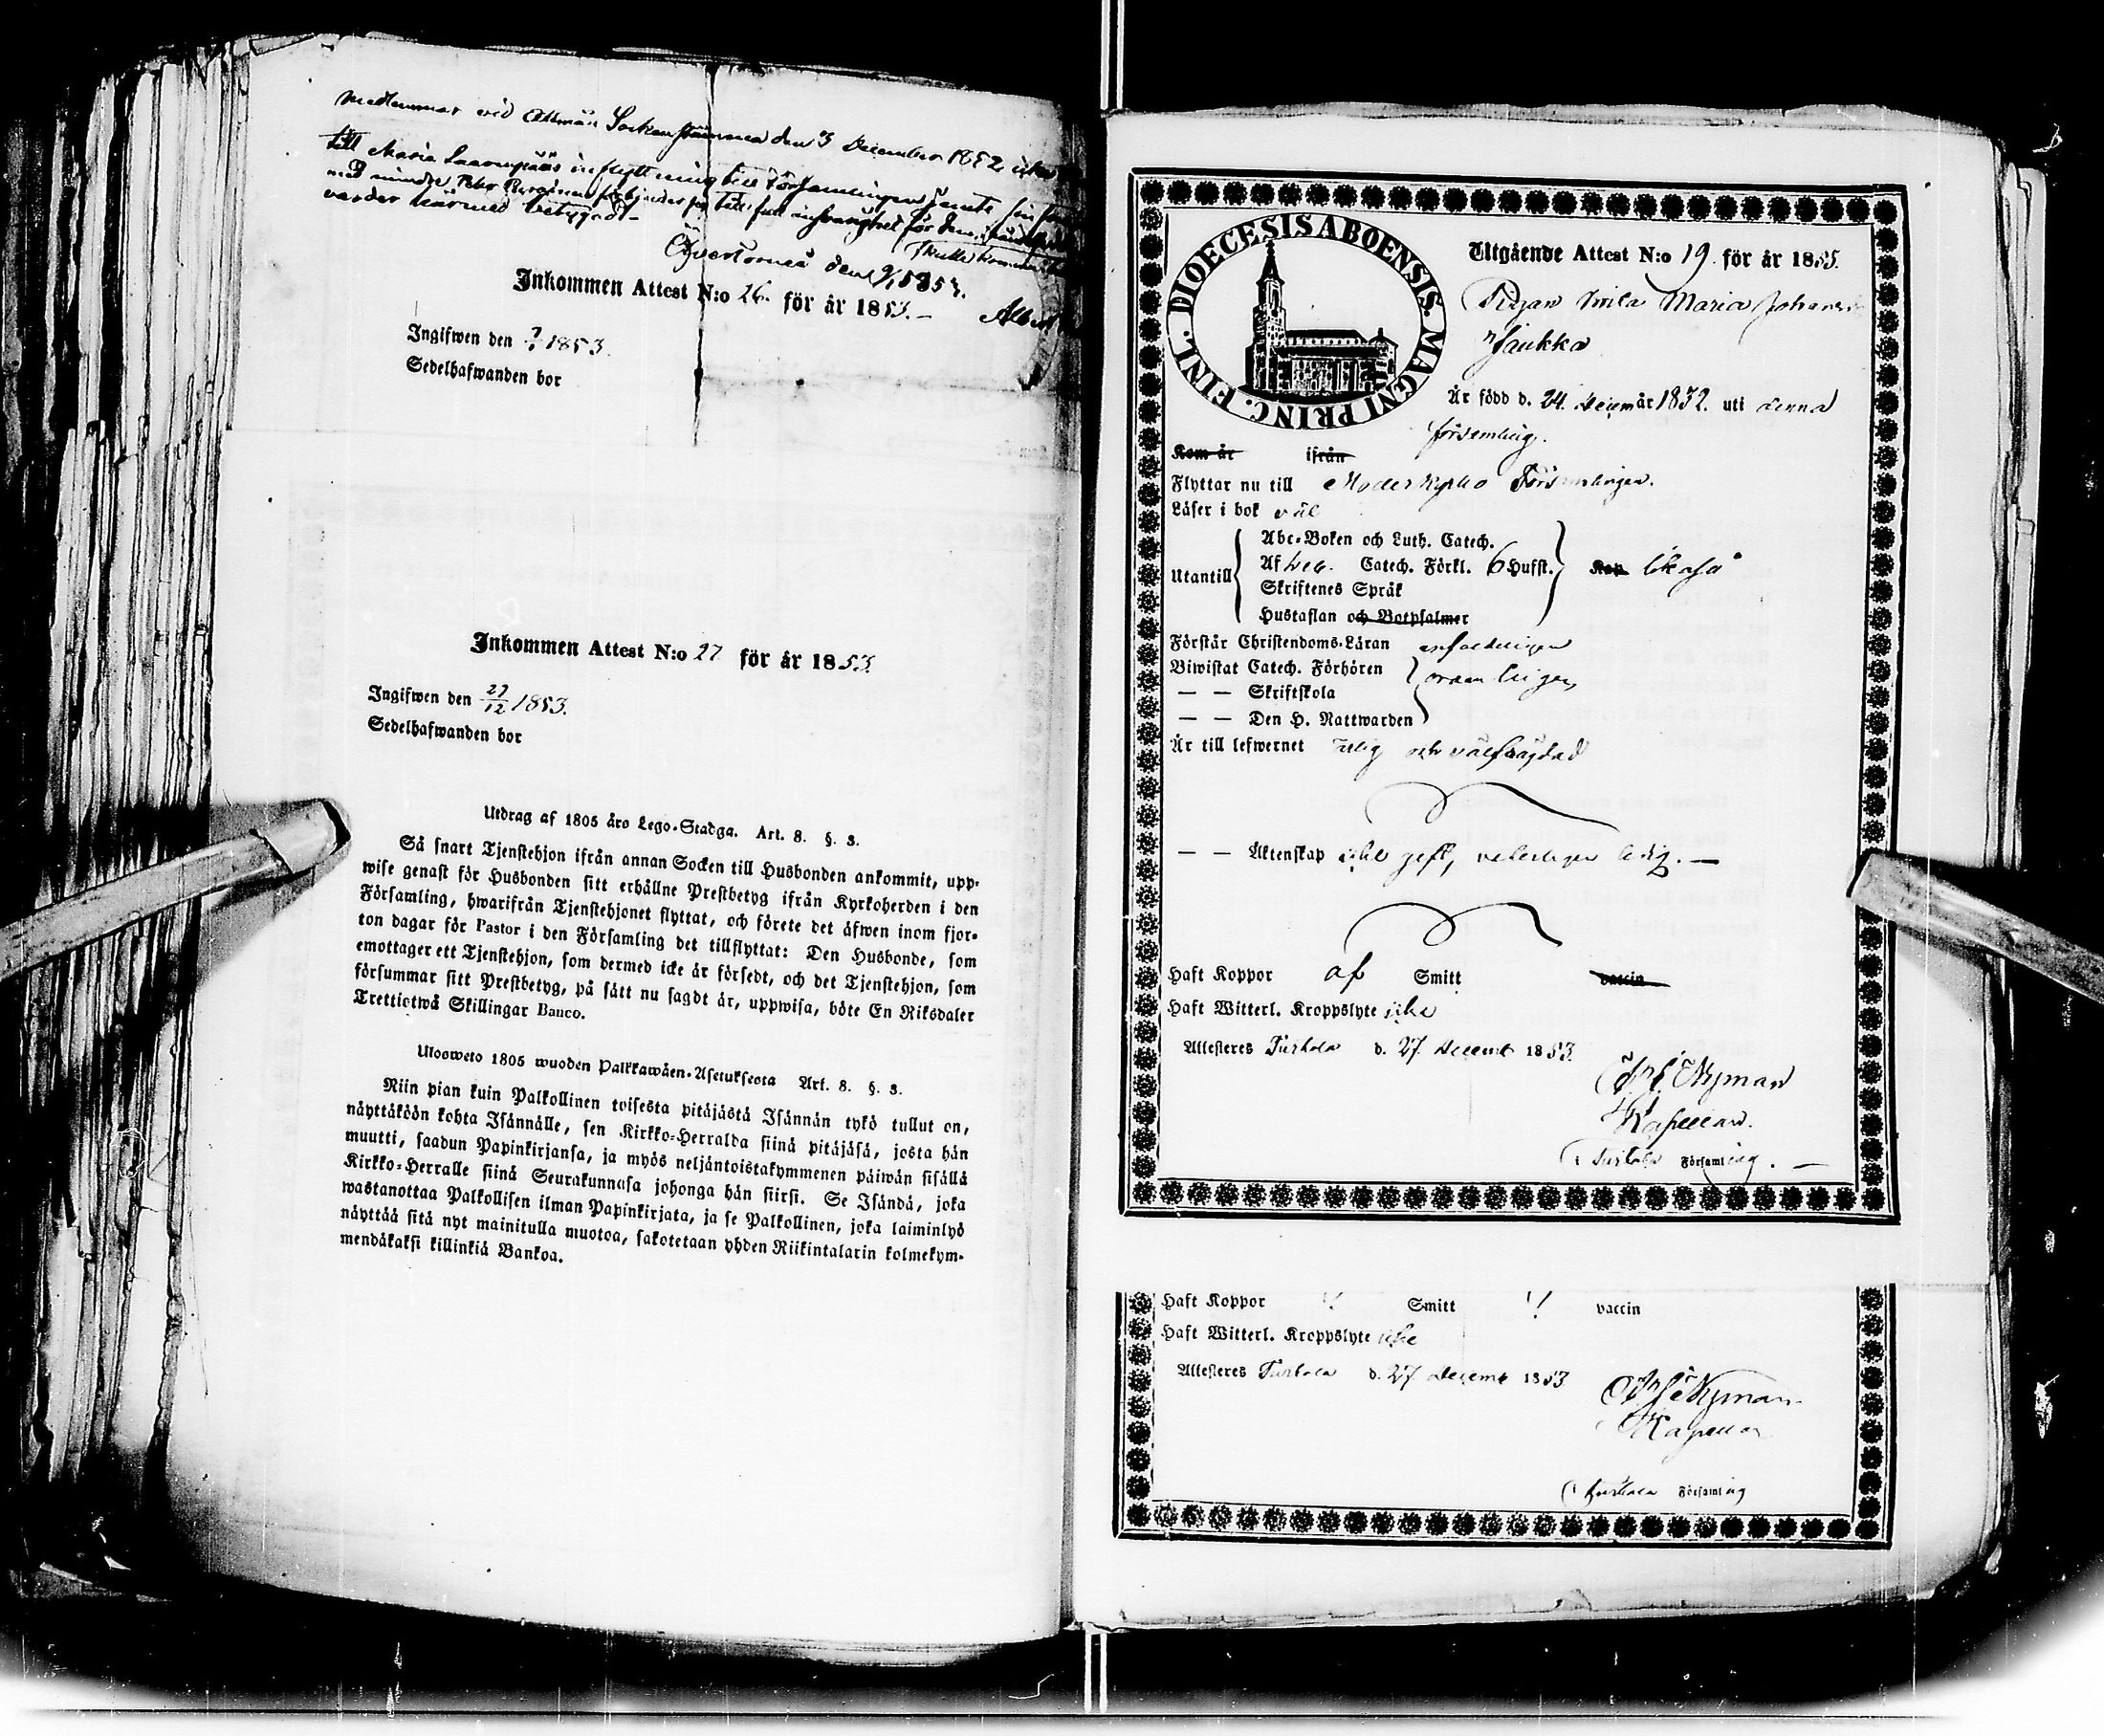 medlemmar vid Allmän Sockenstämma den 3 December 1852
till Maria inflyttning till Församlingen jemte sin
med mindre Petter förbinder sig till full ansvarighet för den
varder härmed betygadt
skulle komma
Öfvertorneå den 1853.
Albert
Inkommen Attest N:o 26. för år 1853.
Ingifwen den 7/1 1853.
Sedelhafwanden bor
Inkommen Attest N:o 27 för år 1853
Ingifwen den 27/12 1853.
Sedelhafwanden bor
Utdrag af 1805 års Lego-Stadga. Art. 8. §. 3.
Så snart Tjenstehjon ifrån annan Socken till Husbonden ankommit, upp-
wise genast för Husbonden sitt erhållne Prestbetyg ifrån Kyrkoherden i den
Församling, hwarifrån Tjenstehjonet flyttat, och förete det äfwen inom fjor-
ton dagar för Pastor i den Församling det tillflyttat: Den Husbonde, som
emottager ett Tjenstehjon, som dermed icke är försedt, och det Tjenstehjon, som
försummar sitt Prestbetyg, på sätt nu sagdt är, uppwisa, böte En Riksdaler
Trettiotwå Skillingar Banco.
Ulosweto 1805 wuoden Palkkawäen-Asetuksesta Art. 8. §. 3.
Niin pian kuin Palkollinen toisesta pitäjästä Isännän tykö tullut on,
näyttäköön kohta Isännälle, sen Kirkko-Herralda siinä pitäjäsä, josta hän
muutti, saadun Papinkirjansa, ja myös neljäntoistakymmenen päiwän sisällä
Kirkko-Herralle siinä Seurakunnasa johonga hän siirsi. Se Isändä, joka
wastanottaa Palkollisen ilman Papinkirjata, ja se Palkollinen, joka laiminlyö
näyttää sitä nyt mainitulla muotoa, sakotetaan yhden Riikintalarin kolmekym-
mendäkaksi killinkiä Bankoa.
DIOECESIS ABOENSIS. MAGNI PRINC. FINL.
Utgående Attest N:o 19. för år 1855.
Pigan Maria Johans
Jaukka
Är född d. 24. Decem år 1832. uti denna
församling.
Kom år ifrån
Flyttar nu till Moderkyrko Församlingen.
Läser i bok väl
Utantill
Abc-Boken och Luth. Catech.
Af Catech. Förkl. 6 Hufst.
Skriftenes Språk
Hustaflan och Botpsalmer
likaså
Förstår Christendoms-Läran enfaldeligen
Biwistat Catech. Förhören
— — Skriftskola
— — Den H. Nattwarden
ordentligen
Är till lefwernet ärlig och välfrägdad
— — Äktenskap icke gift, veterligen ledig. —
Haft Koppor af Smitt vaccin
Haft Witterl. Kroppslyte icke
Attesteres Turtola d. 27. Decemb 1853
Nyman
Kapellan.
i Turtola Församling. —
Haft Koppor Smitt vaccin
Haft Witterl. Kroppslyte icke
Attesteres Turtola d. 27 Decemb 1853
Nyman
Kapellan
i Turtola Församling